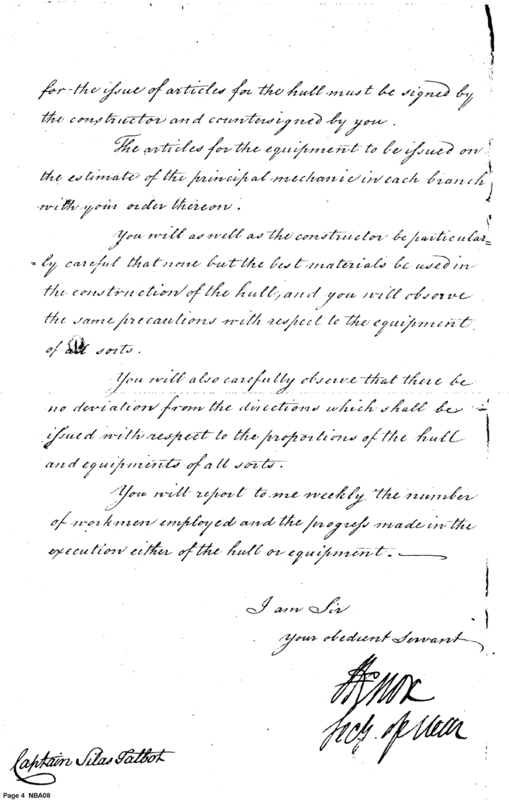 for the issue of articles for the hull must be signed by
the constructor and countersigned by you.
The articles for the equipment to be issued on
the estimate of the principal mechanic in each branch
with your order thereon.
You will as well as the constructor be particular=
=ly careful that none but the best materials be used in
the construction of the hull, and you will observe
the same precautions with respect to the equipment
of all sorts.
You will also carefully observe that there be
no deviation from the directions which shall be
issued with respect to the proportions of the hull
and equipments of all sorts.
You will report to me weekly the number
of workmen employed and the progress made in the
execution either of the hull or equipment.
I am Sir
Your obedient Servant
HKnox
Secy. of War
Captain Silas Talbot
Page 4 NBA08